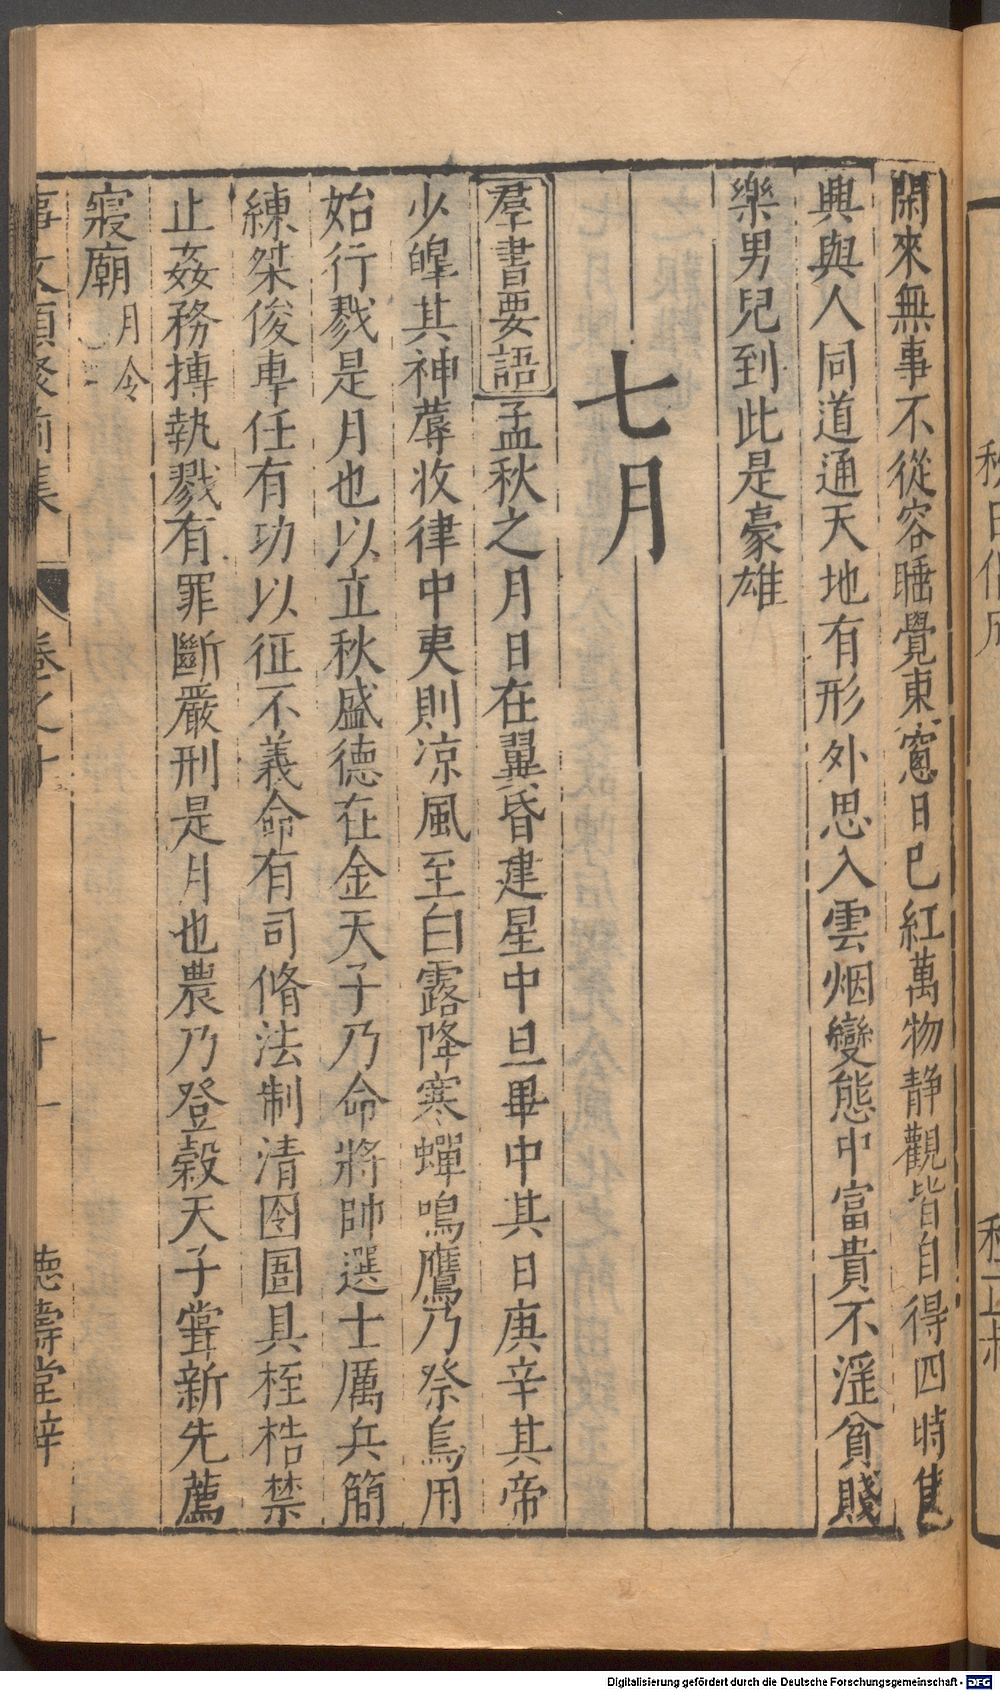 閑來無事不從容睡覺東窻日已紅萬物静觀皆自得四時隹
興與人同道通天地有形外思入雲烟變態中富貴不滛貧賤
樂男兒到此是豪雄
七月
羣書要語孟秋之月日在翼昏建星中旦畢中其日庚辛其帝
少皥其神蓐收律中夷則凉風至白露降寒蟬鳴鷹乃祭鳥用
始行戮是月也以立秋盛德在金天子乃命將帥選士厲兵簡
練桀俊專任有功以征不義命有司脩法制清囹圄具桎梏禁
止姦務搏執戮有罪斷嚴刑是月也農乃登榖天子嘗新先薦
寢廟月令
事文類聚前集 卷之十 十一 德壽堂梓
Digitalisierung gefördert durch die Deutsche Forschungsgemeinschaft - DFG